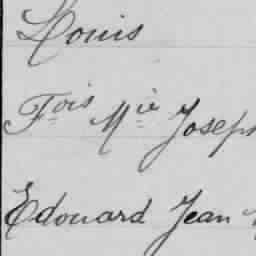 Louis
Fois Mie Joseph
Edouard Jean